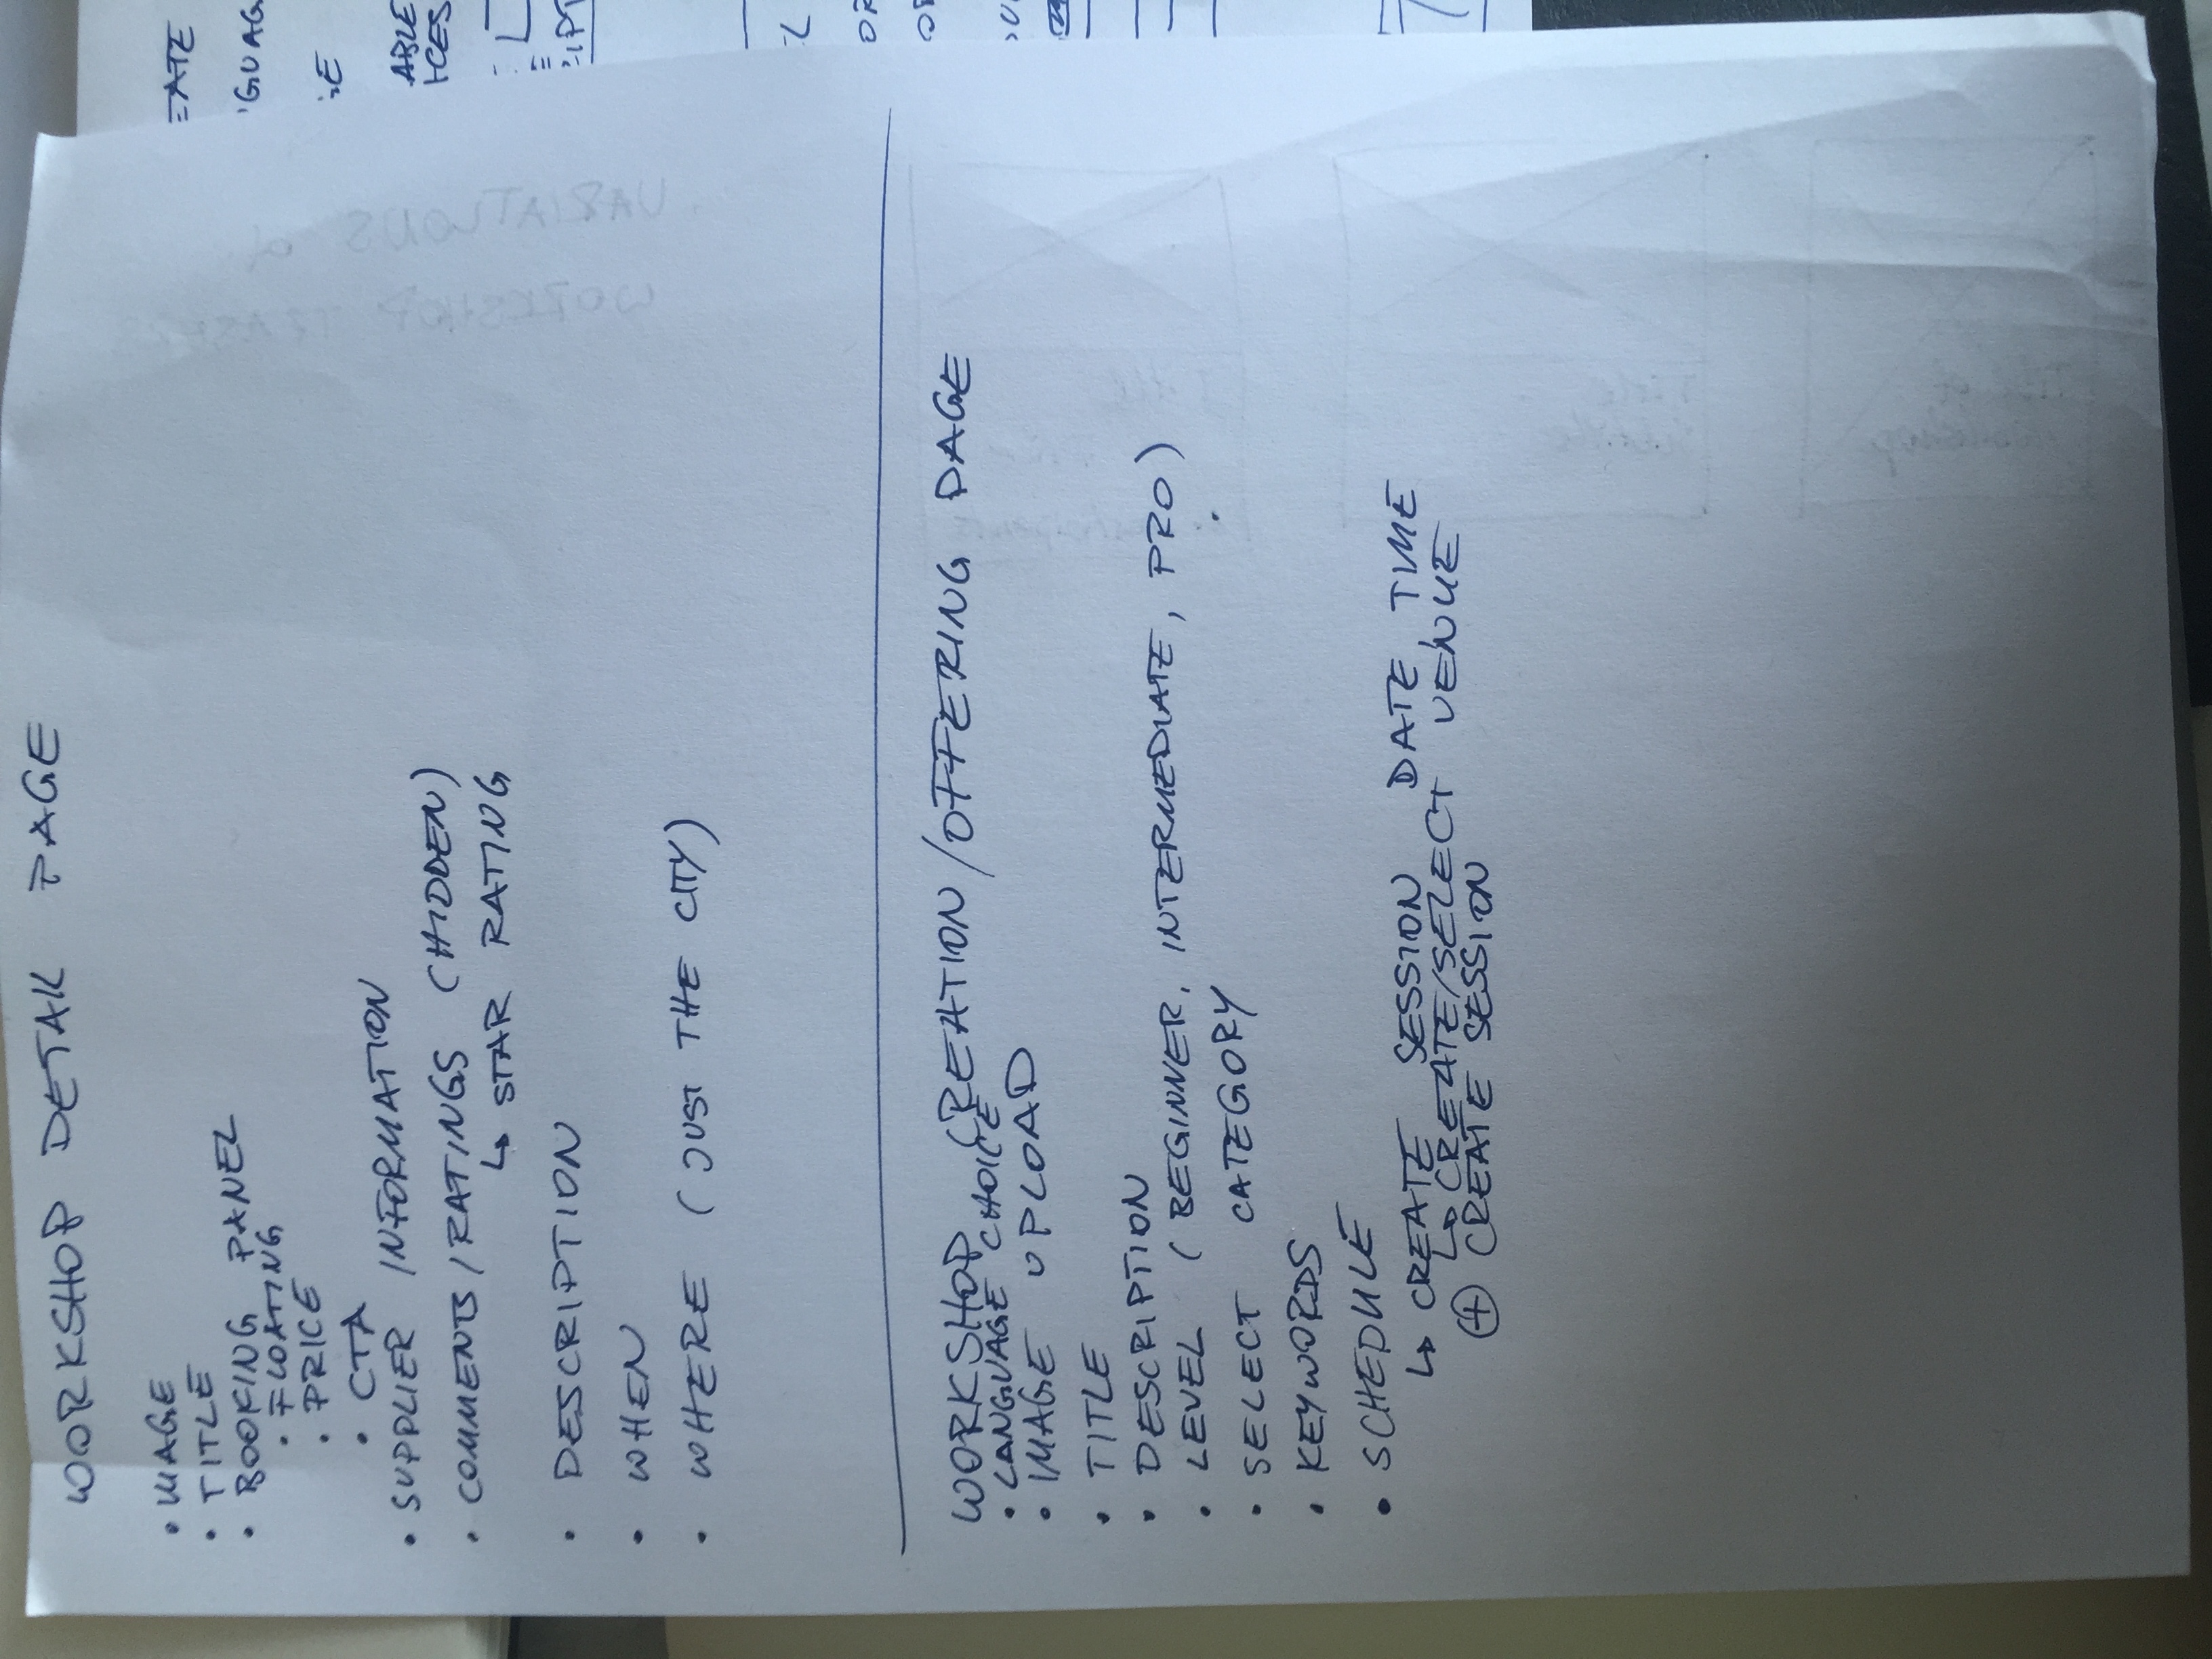 WORKSHOP DETAIL PAGE
• IMAGE
• TITLE
• BOOKING PANEL
• FLOATING
• PRICE
• CTA
• SUPPLIER INFORMATION
• COMMENTS/RATINGS (HIDDEN)
↳ STAR RATING
• DESCRIPTION
• WHEN
• WHERE (JUST THE CITY)
WORKSHOP CREATION/OFFERING PAGE
• LANGUAGE CHOICE
• IMAGE UPLOAD
• TITLE
• DESCRIPTION
• LEVEL (BEGINNER, INTERMEDIATE, PRO)
• SELECT CATEGORY
• KEYWORDS
• SCHEDULE
↳ CREATE SESSION DATE, TIME
↳ CREATE/SELECT VENUE
⊕ CREATE SESSION
EATE
GUAG
ABLE
ICES